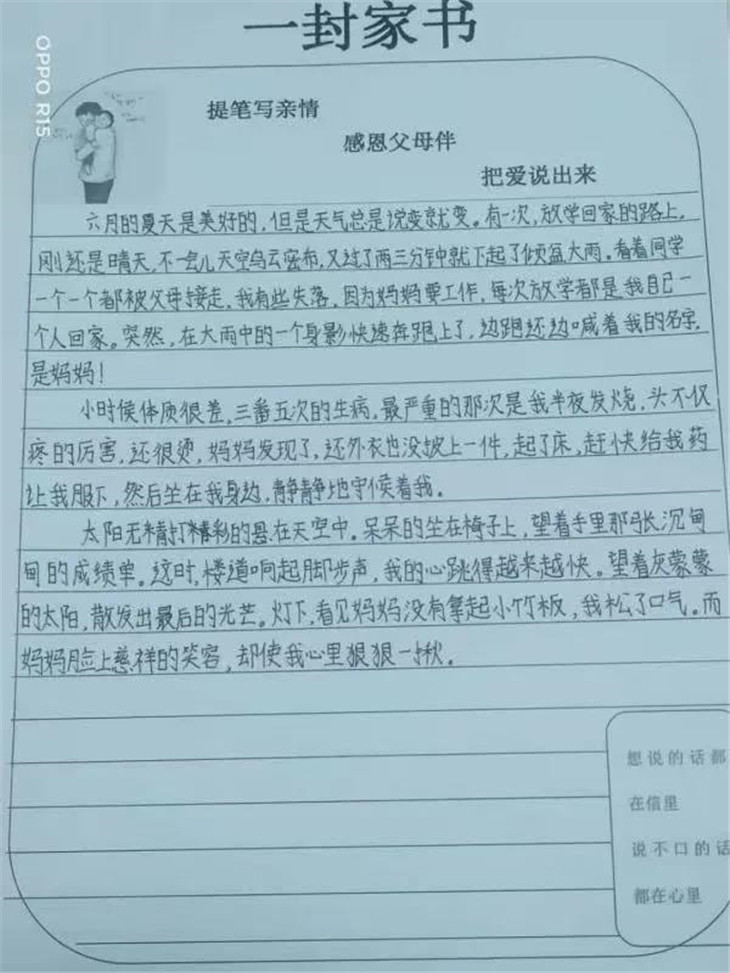 一封家书
OPPO R15
提笔写亲情
感恩父母伴
把爱说出来
六月的夏天是美好的,但是天气总是说变就变。有一次,放学回家的路上,
刚还是晴天,不一会儿天空乌云密布,又过了两三分钟就下起了倾盆大雨。看着同学
一个一个都被父母接走,我有些失落,因为妈妈要工作,每次放学都是我自己一
个人回家。突然,在大雨中的一个身影快速奔跑上了,边跑还边喊着我的名字,
是妈妈!
小时候体质很差,三番五次的生病,最严重的那次是我半夜发烧,头不仅
疼的厉害,还很烫,妈妈发现了,还外衣也没披上一件,起了床,赶快给我药
让我服下,然后坐在我身边,静静地守候着我。
太阳无精打精彩的悬在天空中。呆呆的坐在椅子上,望着手里那张沉甸
甸的成绩单。这时,楼道响起脚步声,我的心跳得越来越快。望着灰蒙蒙
的太阳,散发出最后的光芒。灯下,看见妈妈没有拿起小竹板,我松了口气。而
妈妈脸上慈祥的笑容,却使我心里狠狠一揪。
想说的话都
在信里
说不口的话
都在心里